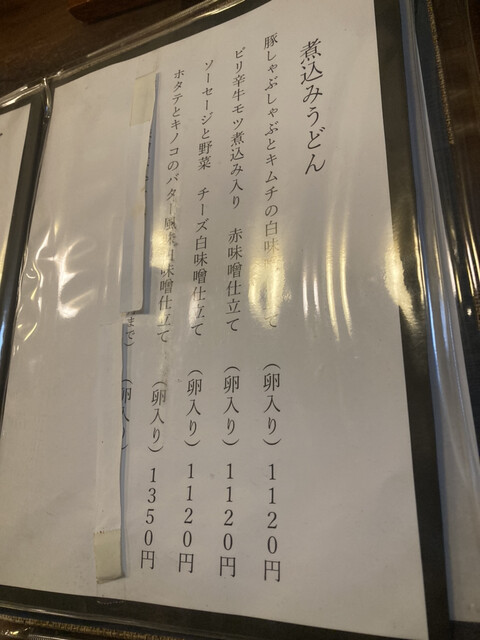 煮込みうどん
豚しゃぶしゃぶとキムチの白味噌仕立て （卵入り） 1120円
ピリ辛牛モツ煮込み入り 赤味噌仕立て （卵入り） 1120円
ソーセージと野菜 チーズ白味噌仕立て （卵入り） 1120円
ホタテとキノコのバター風味白味噌仕立て （卵入り） 1350円
まで） （卵入り）